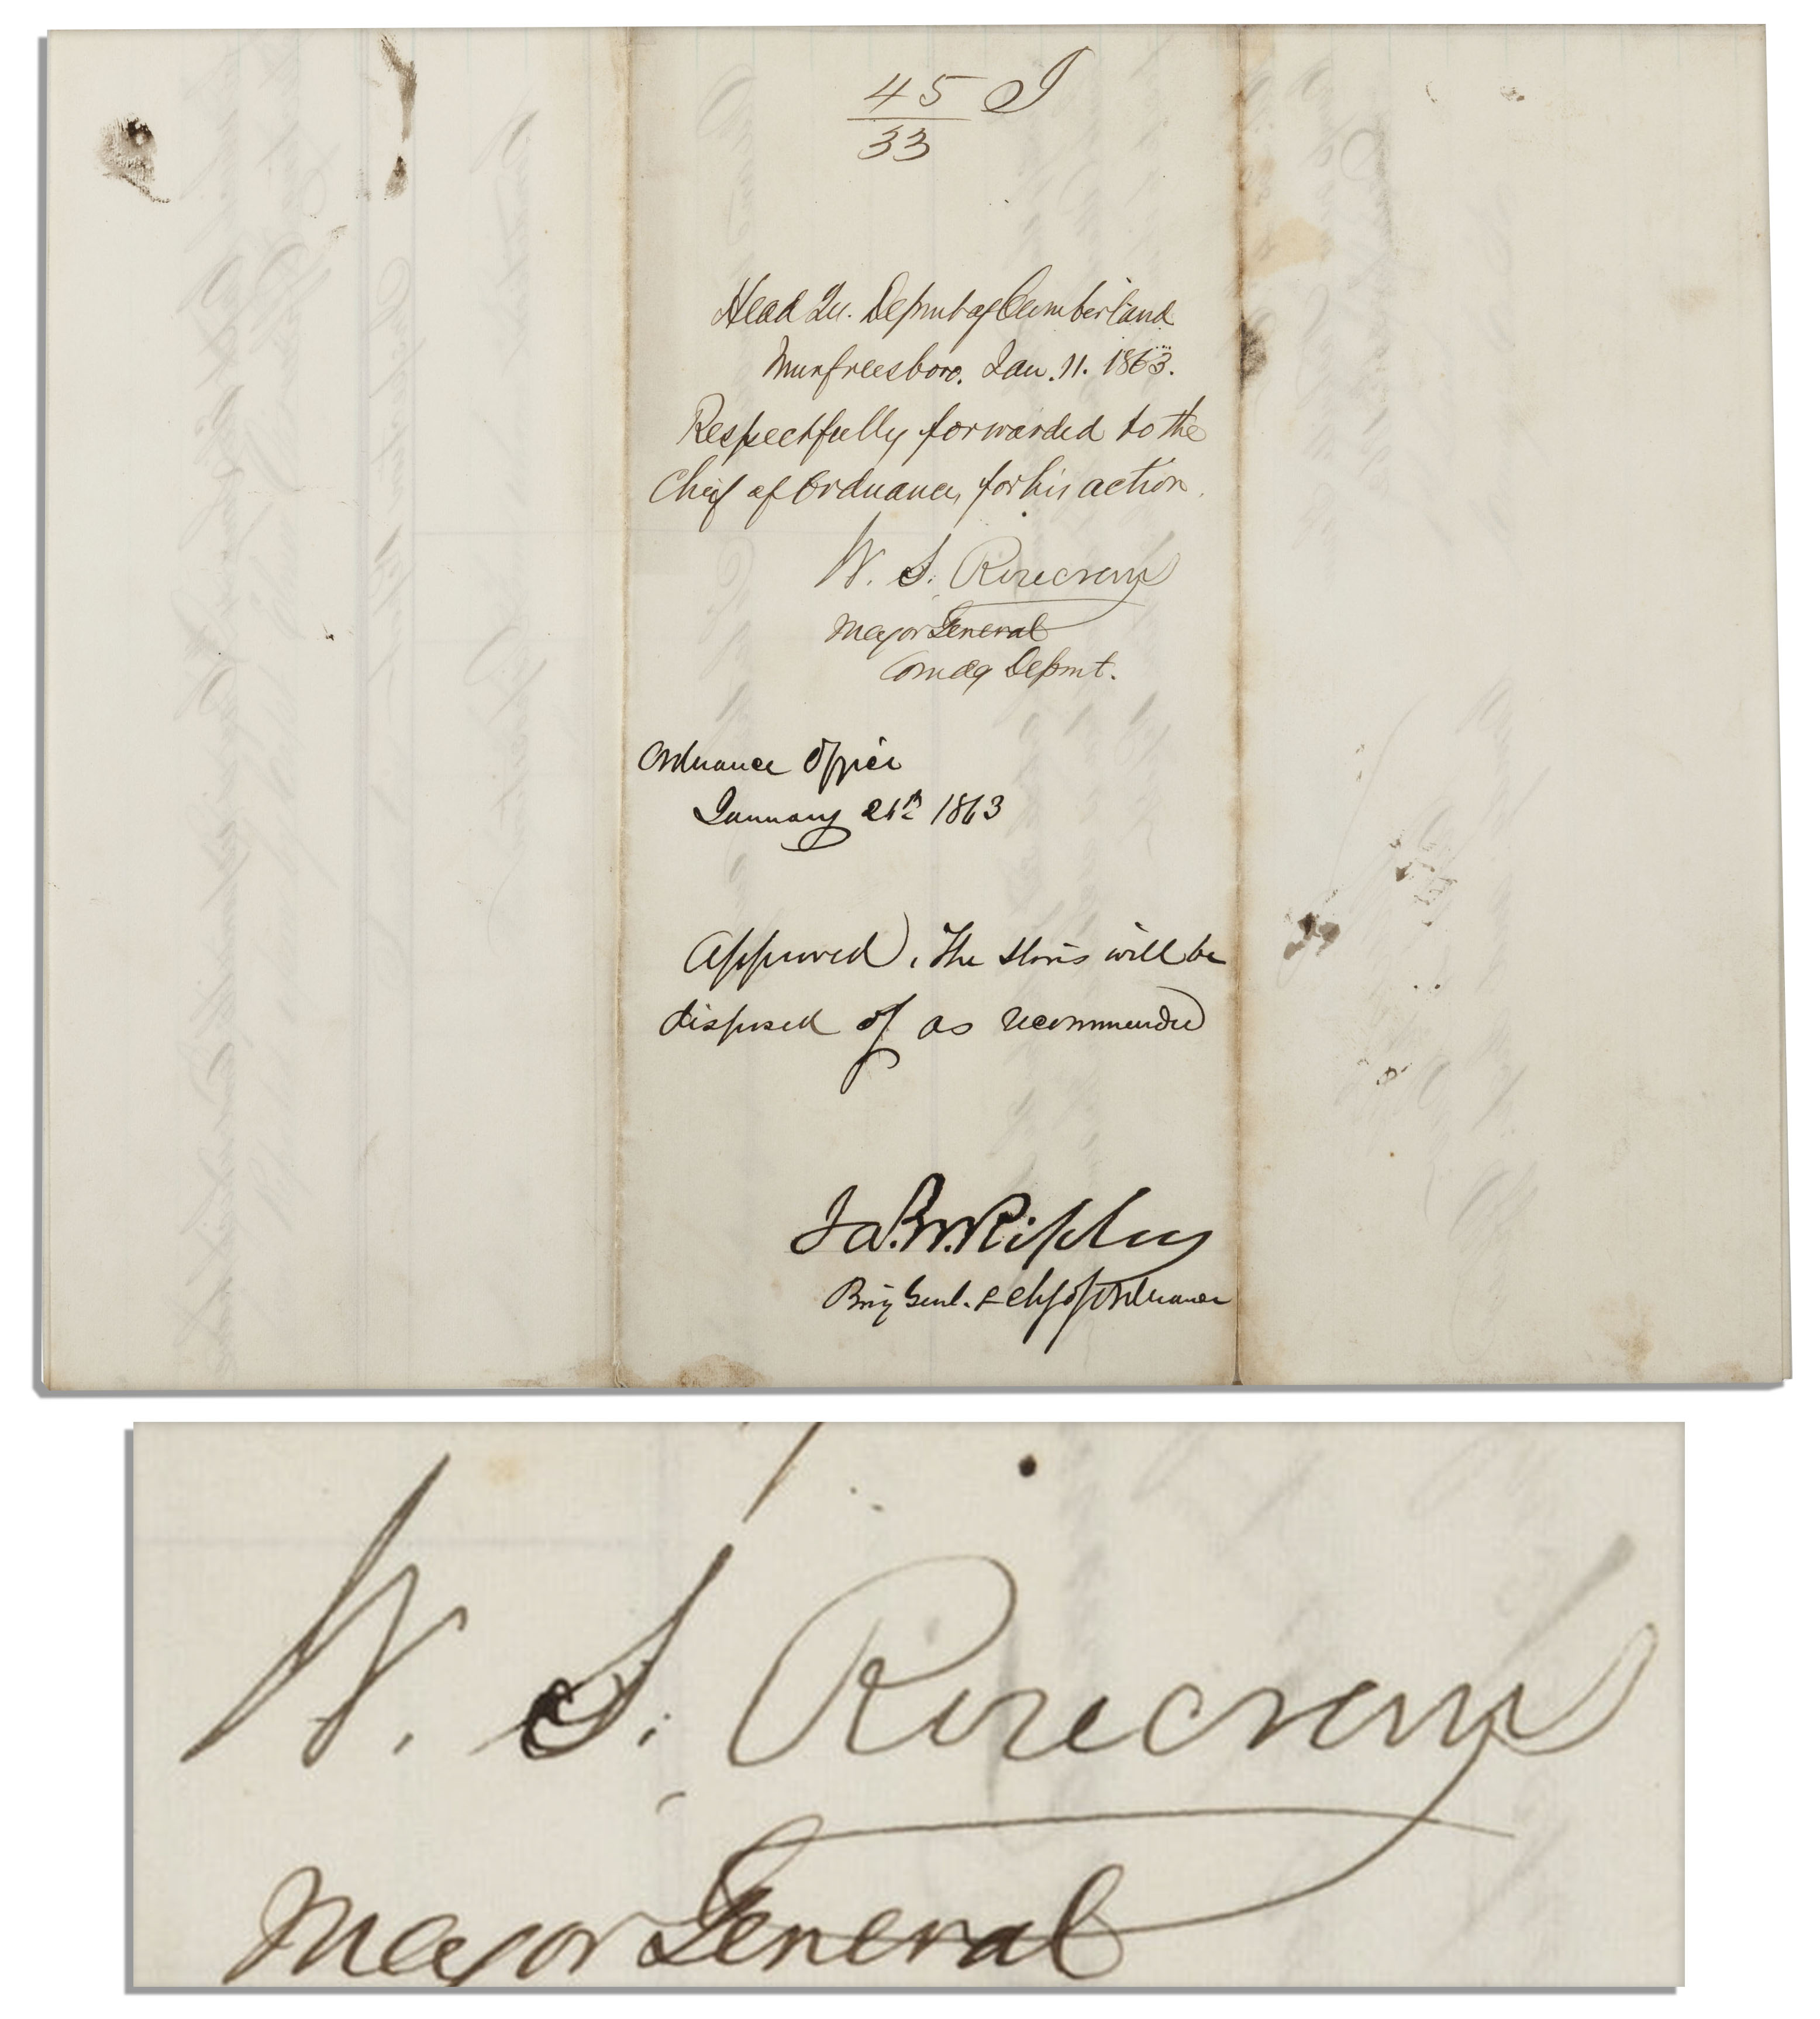 45 I
33
Head Qu. Depmt of Cumberland
Murfreesboro. Jan. 11. 1863.
Respectfully forwarded to the
Chief of Ordnance, for his action.
W. S. Rosecrans
Major General
Comdg Depmt.
Ordnance Office
January 26th 1863
Approved. The stores will be
disposed of as recommended
Ja. W. Ripley
Brig Genl. & Ch. of Ordnance
W. S. Rosecrans
Major General